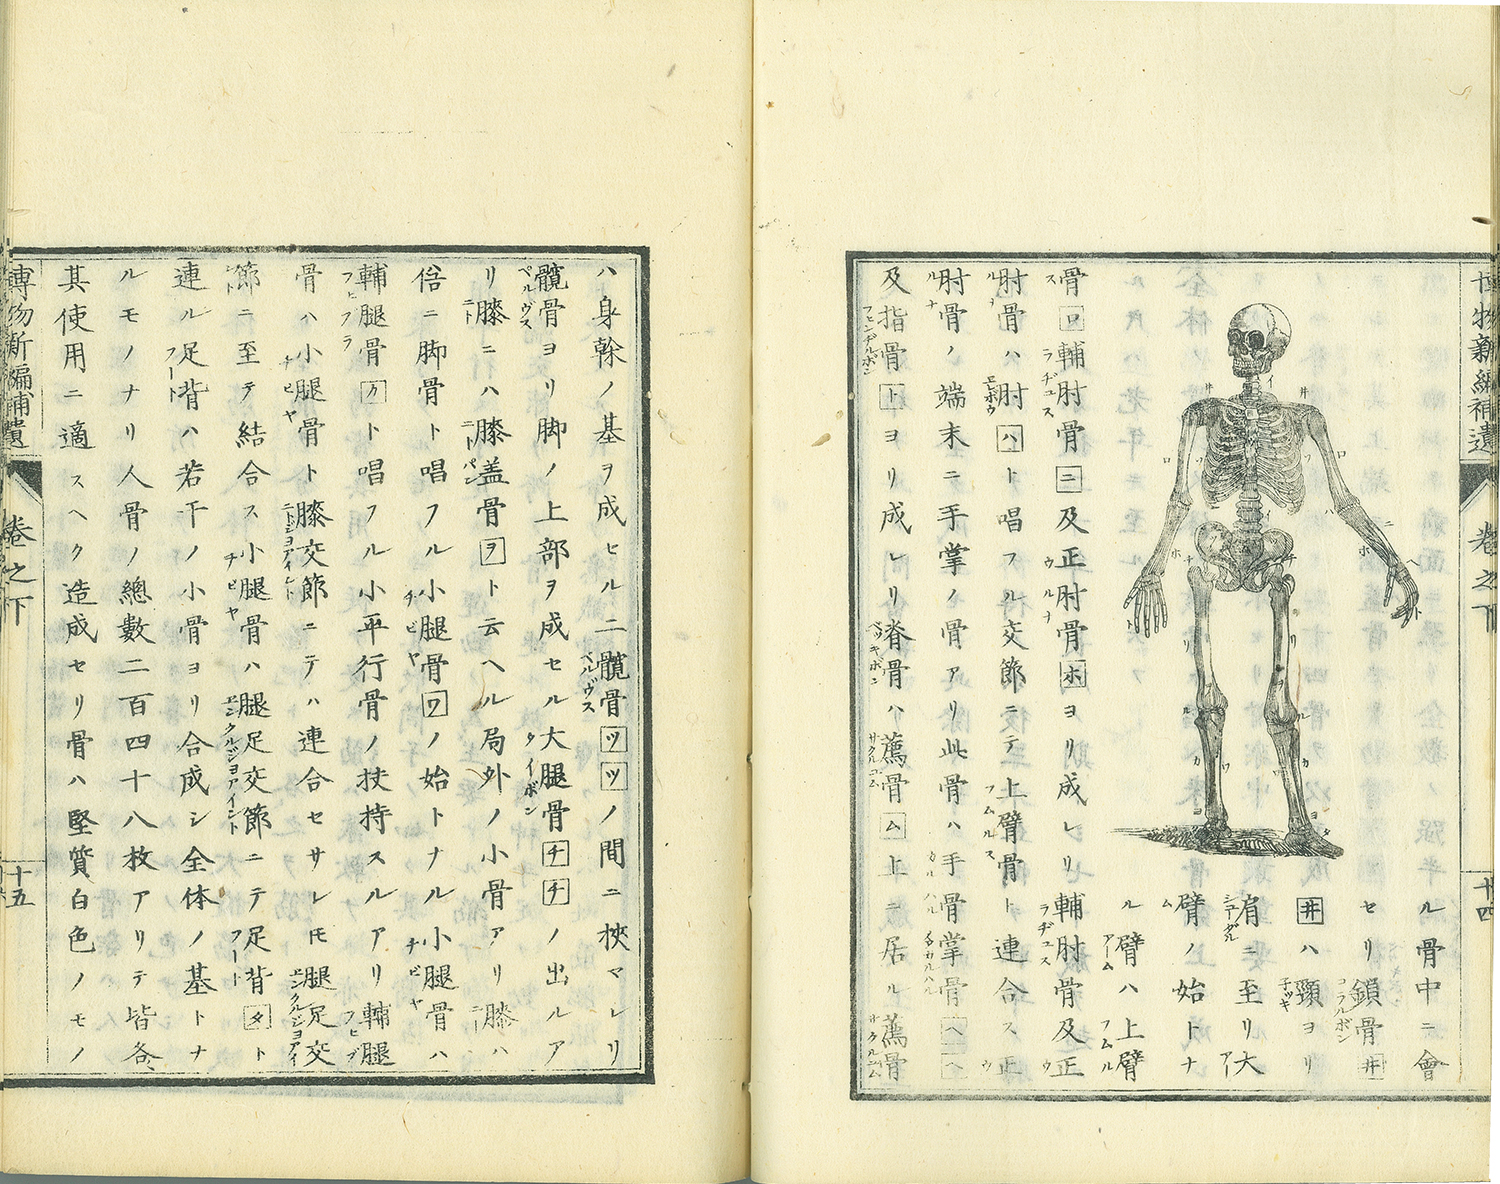 博物新編補遺
巻之下
十四
ル骨中ニ會
セリ鎖骨井
井ハ頸ヨリ
肩ニ至リ大
臂ノ始トナ
ル臂ハ上臂
骨ロ輔肘骨ニ及正肘骨ホヨリ成レリ輔肘骨及正
肘骨ハ肘ハト唱フル交節ニテ上臂骨ト連合ス正
肘骨ノ端末ニ手掌ノ骨アリ此骨ハ手骨掌骨ヘヘ
及指骨トヨリ成レリ脊骨ハ薦骨ム上ニ居ル薦骨
ハ身幹ノ基ヲ成ヒル二髖骨ツツノ間ニ挾マレリ
髖骨ヨリ脚ノ上部ヲ成セル大腿骨チチノ出ルア
リ膝ニハ膝盖骨ヲト云ヘル局外ノ小骨アリ膝ハ
偣ニ脚骨ト唱フル小腿骨ワノ始トナル小腿骨ハ
輔腿骨カト唱フル小平行骨ノ扶持スルアリ輔腿
骨ハ小腿骨ト膝交節ニテハ連合セサレ𪜈腿足交
節ニ至テ結合ス小腿骨ハ腿足交節ニテ足背タト
連ル足背ハ若干ノ小骨ヨリ合成シ全体ノ基トナ
ルモノナリ人骨ノ總數二百四十八枚アリテ皆各、
其使用ニ適スヘク造成セリ骨ハ堅質白色ノモノ
博物新編補遺
巻之下
十五